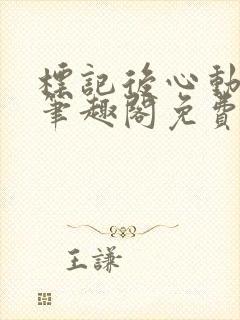 標記後心動
筆趣閣免費
王謙